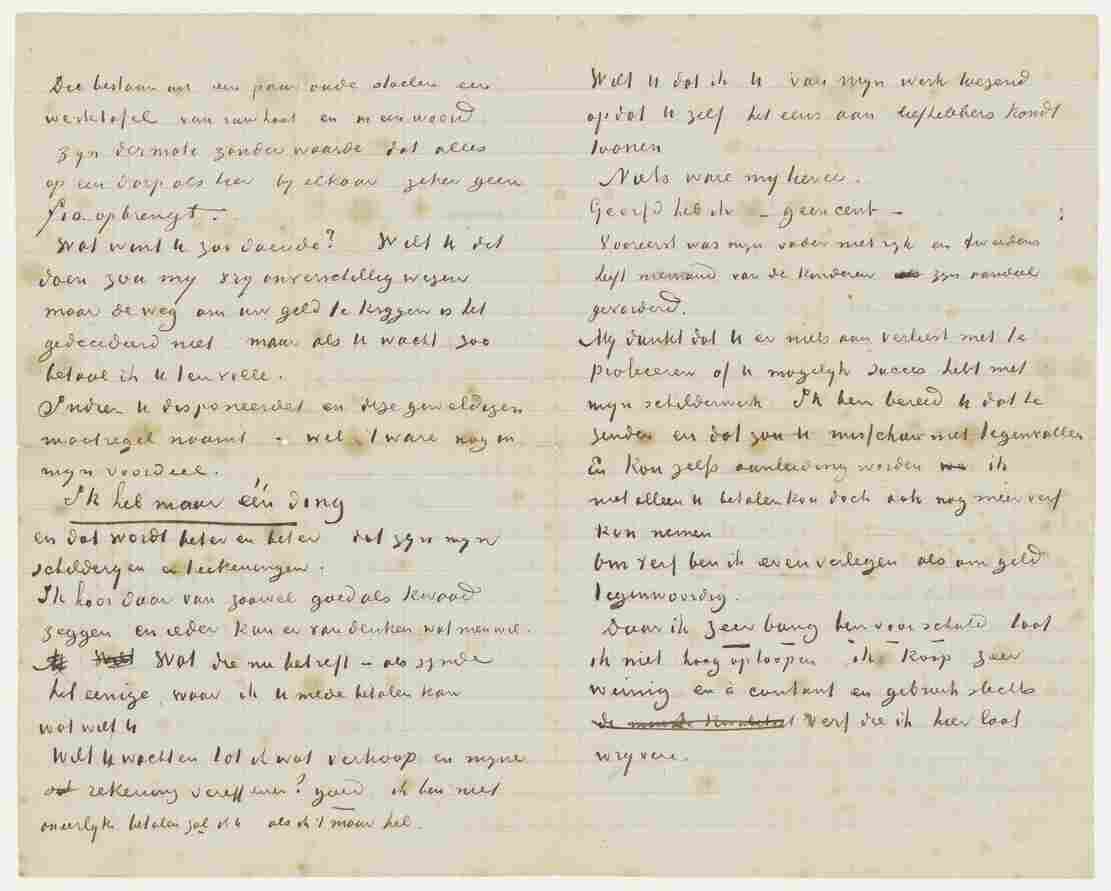 Die bestaan in een paar oude stoelen een
werktafel van ruw hout en in een woord
zyn dermate zonder waarde dat alles
op een dorp als hier by elkaar zeker geen
f10 opbrengt.
Wat wint U zoo doende? Wilt U dit
doen zou my vry onverschillig wezen
maar de weg om uw geld te krygen is het
gedecideerd niet maar als U wacht zoo
betaal ik U ten volle.
Indien U disponeerdet en deze geweldigen
maatregel naamt – wel, 't ware nog in
myn voordeel.
Ik heb maar één ding
en dat wordt beter en beter dat zyn myn
schilderyen en teekeningen.
Ik hoor daar van zoowel goed als kwaad
zeggen en ieder kan er van denken wat men wil.
Wat die nu betreft – als zynde
het eenige waar ik U mede betalen kan
wat wilt U
Wilt U wachten tot ik wat verkoop en myne
rekening vereffenen? goed ik ben niet
oneerlyk betalen zal ik U als ik 't maar heb.
Wilt U dat ik U van myn werk toezend
opdat U zelf het eens aan liefhebbers kondt
toonen
Niets ware my liever.
Geerfd heb ik – geen cent –
Vooreerst was myn vader niet ryk en tweedens
heeft niemand van de kinderen zyn aandeel
gevorderd.
My dunkt dat U er niets aan verliest met te
probeeren of U mogelyk succes hebt met
myn schilderwerk Ik ben bereid U dat te
zenden en dat zou U misschien niet tegenvallen
En kon zelfs aanleiding worden ik
niet alleen U betalen kon doch ook nog meer verf
kon nemen
Om verf ben ik even verlegen als om geld
tegenwoordig.
Daar ik zeer bang ben voor schuld laat
ik niet hoog oploopen ik koop zeer
weinig en à contant en gebruik slechts
verf die ik hier laat
wryven.